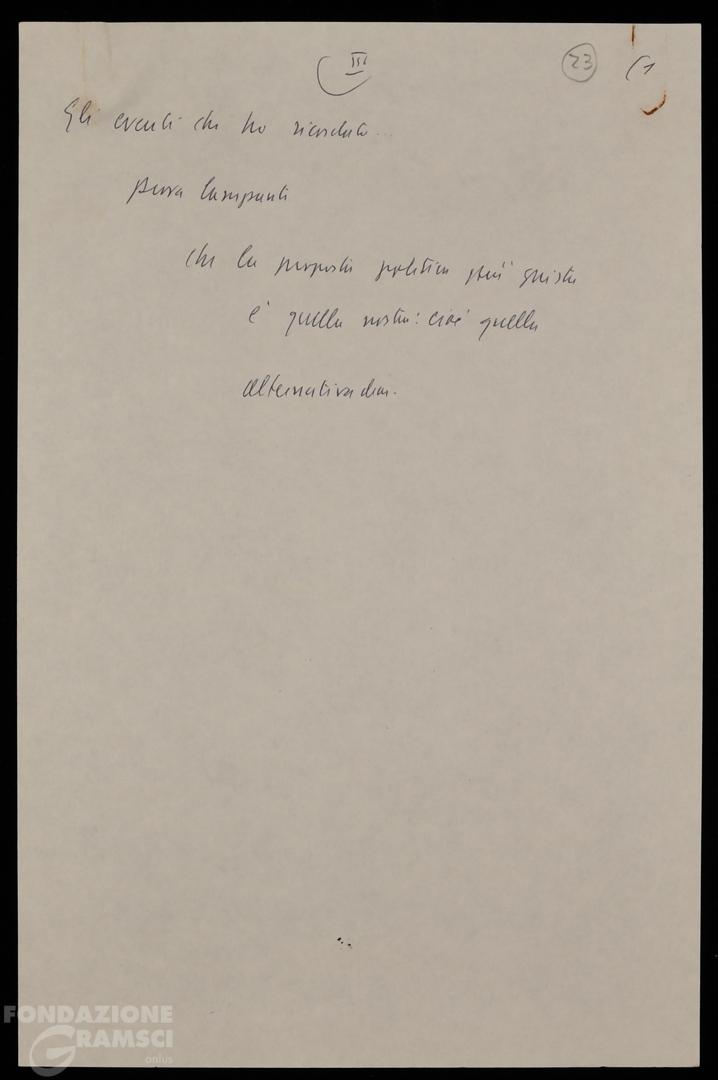 III 23 (1
Gli eventi che ho ricordato...
prova lampanti
che la proposta politica più giusta
è quella nostra: cioè quella
alternativa dem.
FONDAZIONE
GRAMSCI
onlus